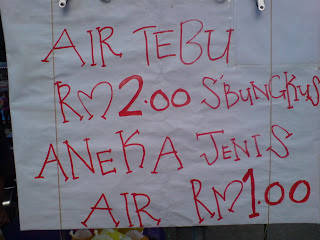 AIR TEBU
RM2.00 S'BUNGKUS
ANEKA JENIS
AIR RM1.00